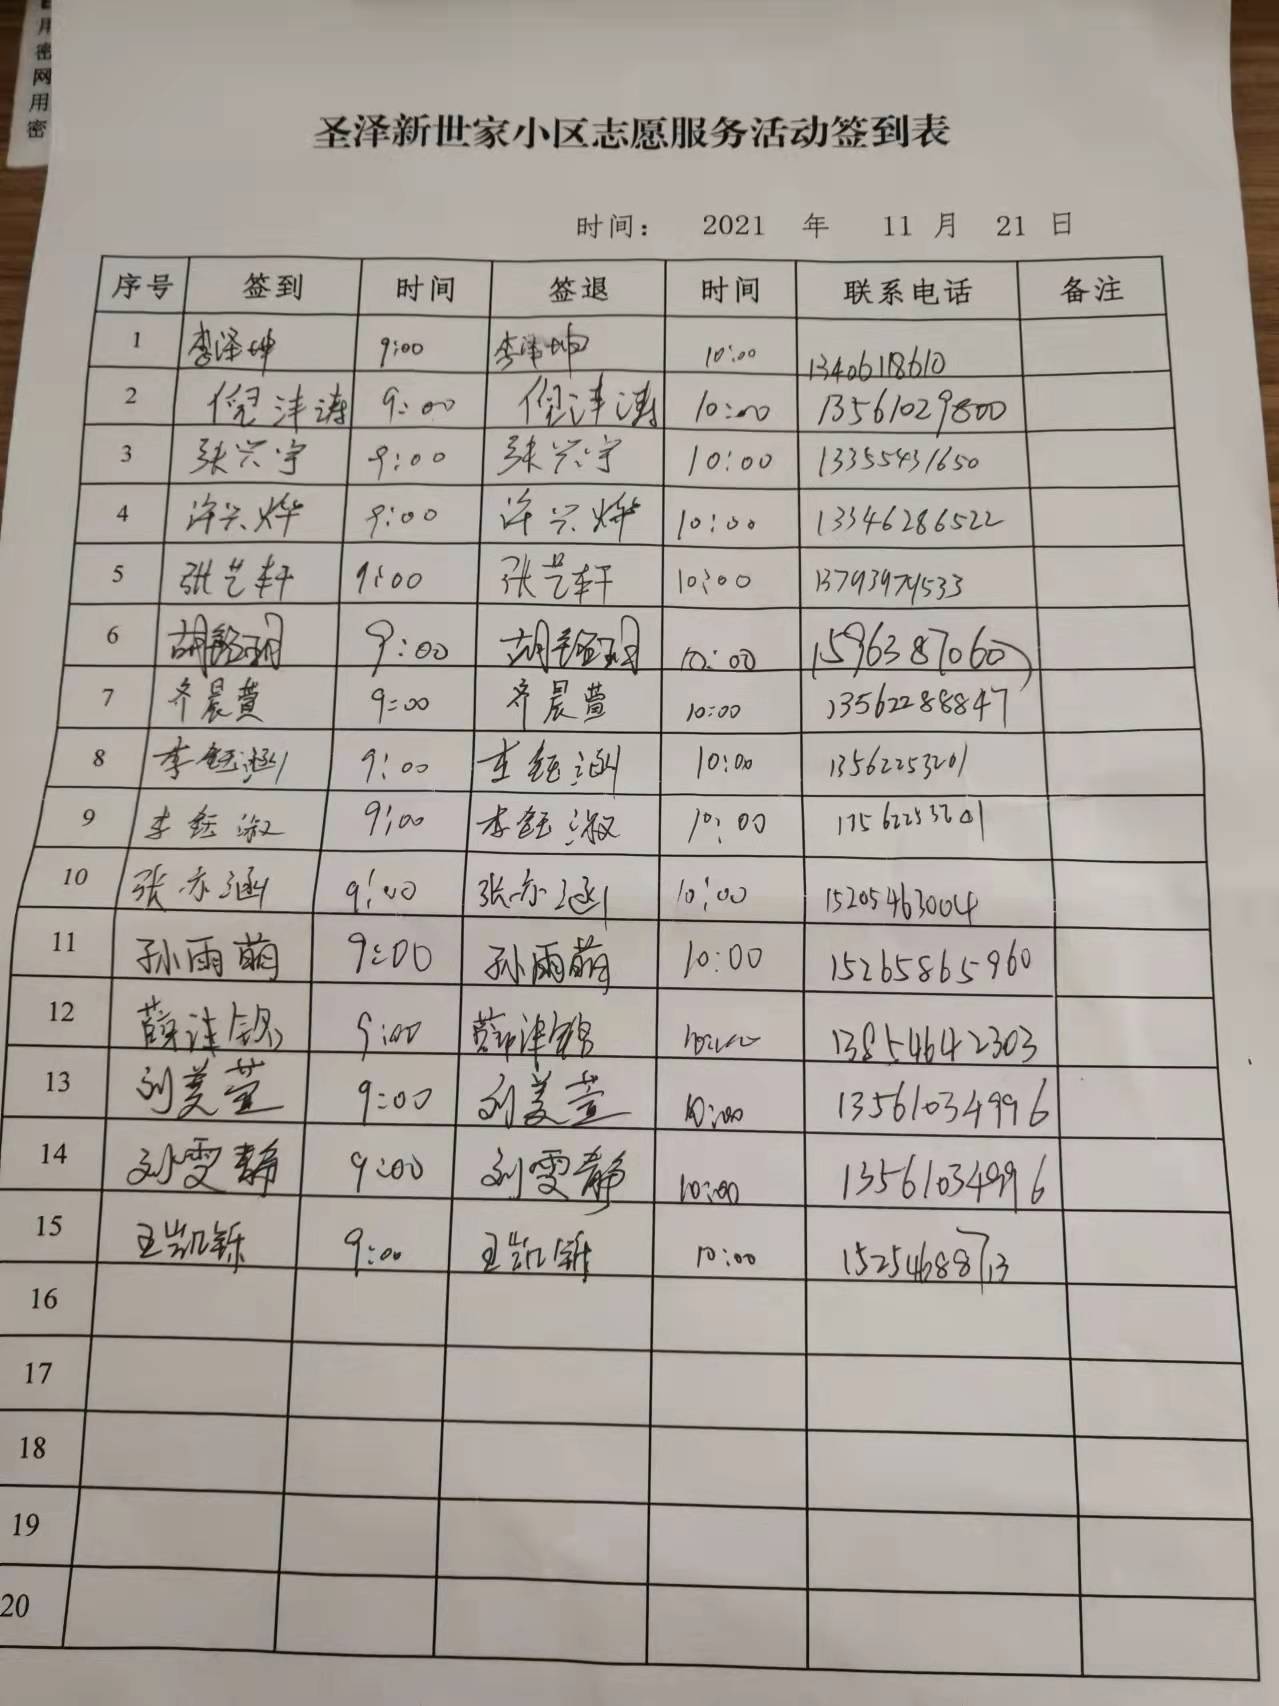 用
密
网
用
密
圣泽新世家小区志愿服务活动签到表
时间： 2021 年 11 月 21 日
序号 签到 时间 签退 时间 联系电话 备注
1 李泽坤 9:00 李泽坤 10:00 13406118610
2 倪沣涛 9:00 倪沣涛 10:00 13561029800
3 张兴宇 9:00 张兴宇 10:00 13355431650
4 许兴烨 9:00 许兴烨 10:00 13346286522
5 张艺轩 9:00 张艺轩 10:00 13793979533
6 9:00 10:00 1596387060
7 齐晨萱 9:00 齐晨萱 10:00 13562288847
8 李钰涵 9:00 李钰涵 10:00 13562253201
9 李钰淑 9:00 李钰淑 10:00
10 张亦涵 9:00 张亦涵 10:00 15205463004
11 孙雨萌 9:00 孙雨萌 10:00 15265865960
12 9:00 13854642303
13 刘美萱 9:00 刘美萱 10:00 13561034996
14 刘雯静 9:00 刘雯静 10:00 13561034996
15 王凯铄 9:00 王凯铄 10:00 15254688713
16
17
18
19
20